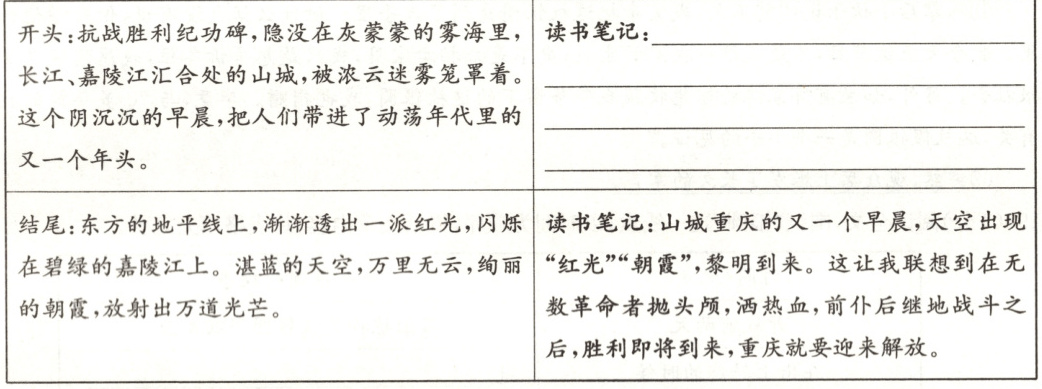 开头:抗战胜利纪功碑,隐没在灰蒙蒙的雾海里,
长江、嘉陵江汇合处的山城,被浓云迷雾笼罩着。
这个阴沉沉的早晨,把人们带进了动荡年代里的
又一个年头。
读书笔记:
结尾:东方的地平线上,渐渐透出一派红光,闪烁
在碧绿的嘉陵江上。湛蓝的天空,万里无云,绚丽
的朝霞,放射出万道光芒。
读书笔记:山城重庆的又一个早晨,天空出现
“红光”“朝霞”,黎明到来。这让我联想到在无
数革命者抛头颅,洒热血,前仆后继地战斗之
后,胜利即将到来,重庆就要迎来解放。